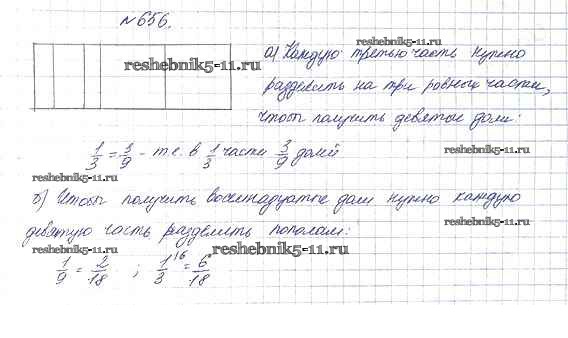 №656.
reshebnik5-11.ru
а) Каждую третью часть нужно
reshebnik5-11.ru
разделить на три ровных части,
чтобы получить девятые доли:
1/3 = 3/9 - т.е. в 1/3 части 3/9 долей
reshebnik5-11.ru
reshebnik5-11.ru
б) Чтобы получить восемнадцатые доли нужно каждую
reshebnik5-11.ru
девятую часть разделить пополам:
reshebnik5-11.ru
reshebnik5-11.ru
1/9 = 2/18 ; 1/3 \6 = 6/18